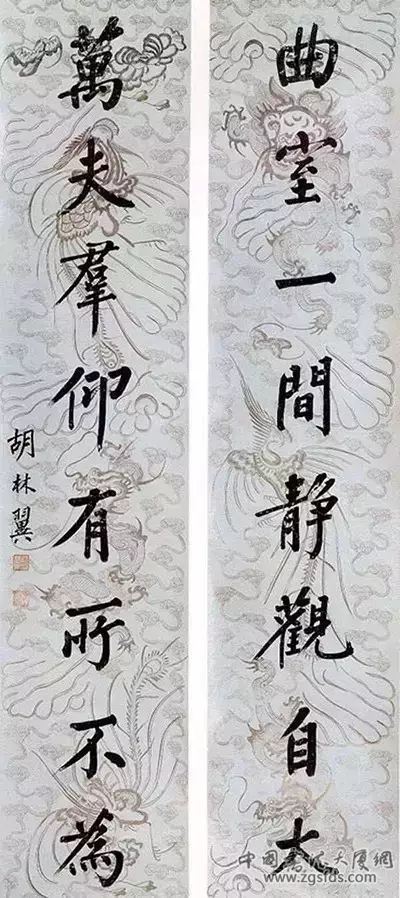 曲室一間静觀自
萬夫羣仰有所不為
胡林翼
中國書法大廈網
www.zgsfds.com